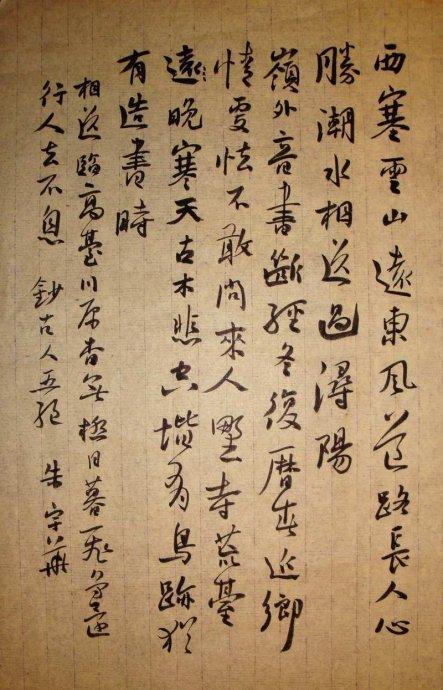 西塞雲山遠東風道路長人心
勝潮水相送過潯陽
嶺外音書斷經冬復曆春近鄉
情更怯不敢問來人野寺荒臺
遠晚寒天古木悲空階有鳥跡猶
有造書時
相送臨高臺川原杳無極日暮飛鳥還
行人去不息 鈔古人五絕 朱